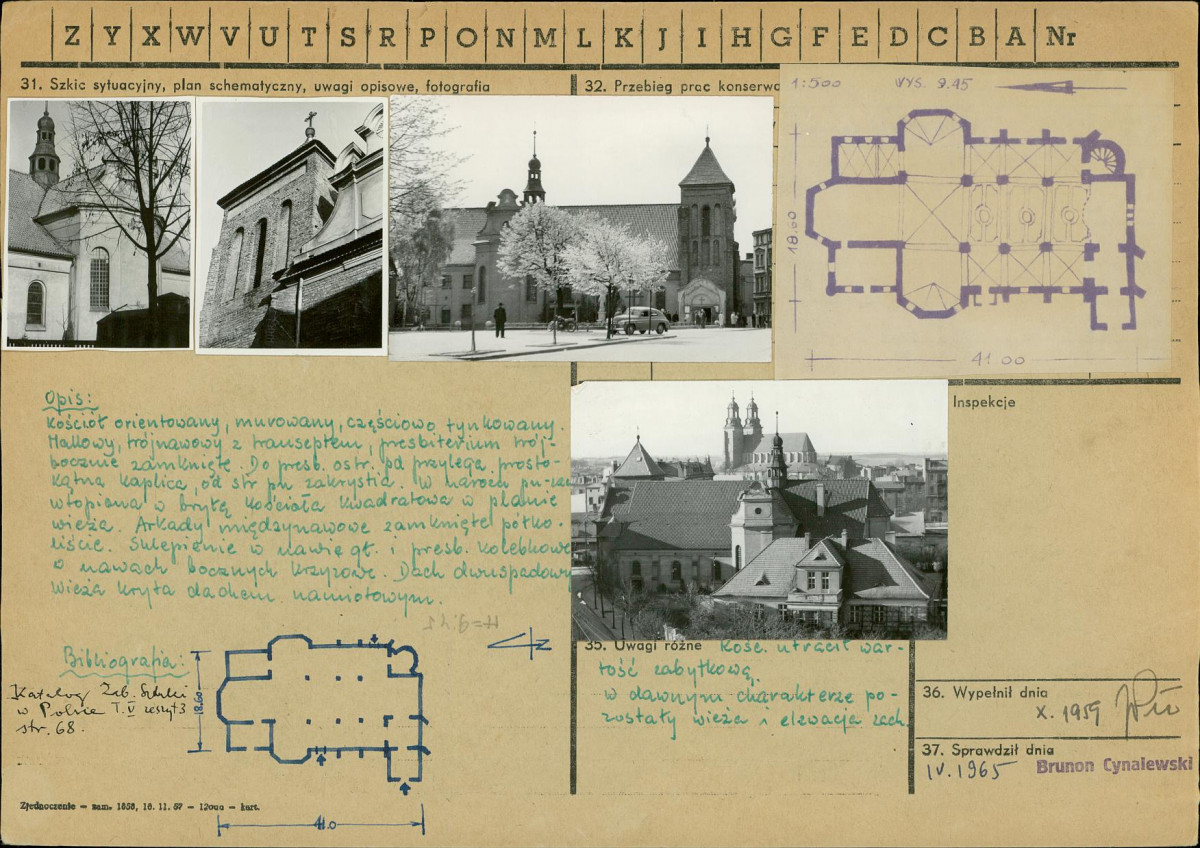 Z Y X W V U T S R P O N M L K J I H G F E D C B A Nr
31. Szkic sytuacyjny, plan schematyczny, uwagi opisowe, fotografia
32. Przebieg prac konserwa
1:500 WYS. 9.45
18.60
41.00
Opis:
Kościół orientowany, murowany, częściowo tynkowany.
Hallowy, trójnawowy z transeptem, presbiterium trój-
bocznie zamknięte. Do presb. od str. pd przylega prosto-
kątna kaplica, od str pn zakrystia. W narożu
wtopiona w bryłę kościoła kwadratowa w planie
wieża. Arkady międzynawowe zamknięte półko-
liście. Sklepienie w nawie gł. i presb. kolebkowe
o nawach bocznych krzyżowe. Dach dwuspadowy
wieża kryta dachem namiotowym.
H=9.45
Bibliografia:
Katalog Zab. Sztuki
w Polsce T.V zeszyt 3
str. 68.
18.60
41.0
Inspekcje
35. Uwagi różne Kość. utracił war-
tość zabytkową.
w dawnym charakterze po-
zostały wieża i elewacja zach.
36. Wypełnił dnia
X. 1959
37. Sprawdził dnia
IV. 1965 Brunon Cynalewski
Zjednoczenie — zam. 1858, 16. 11. 57 — 12000 — kart.